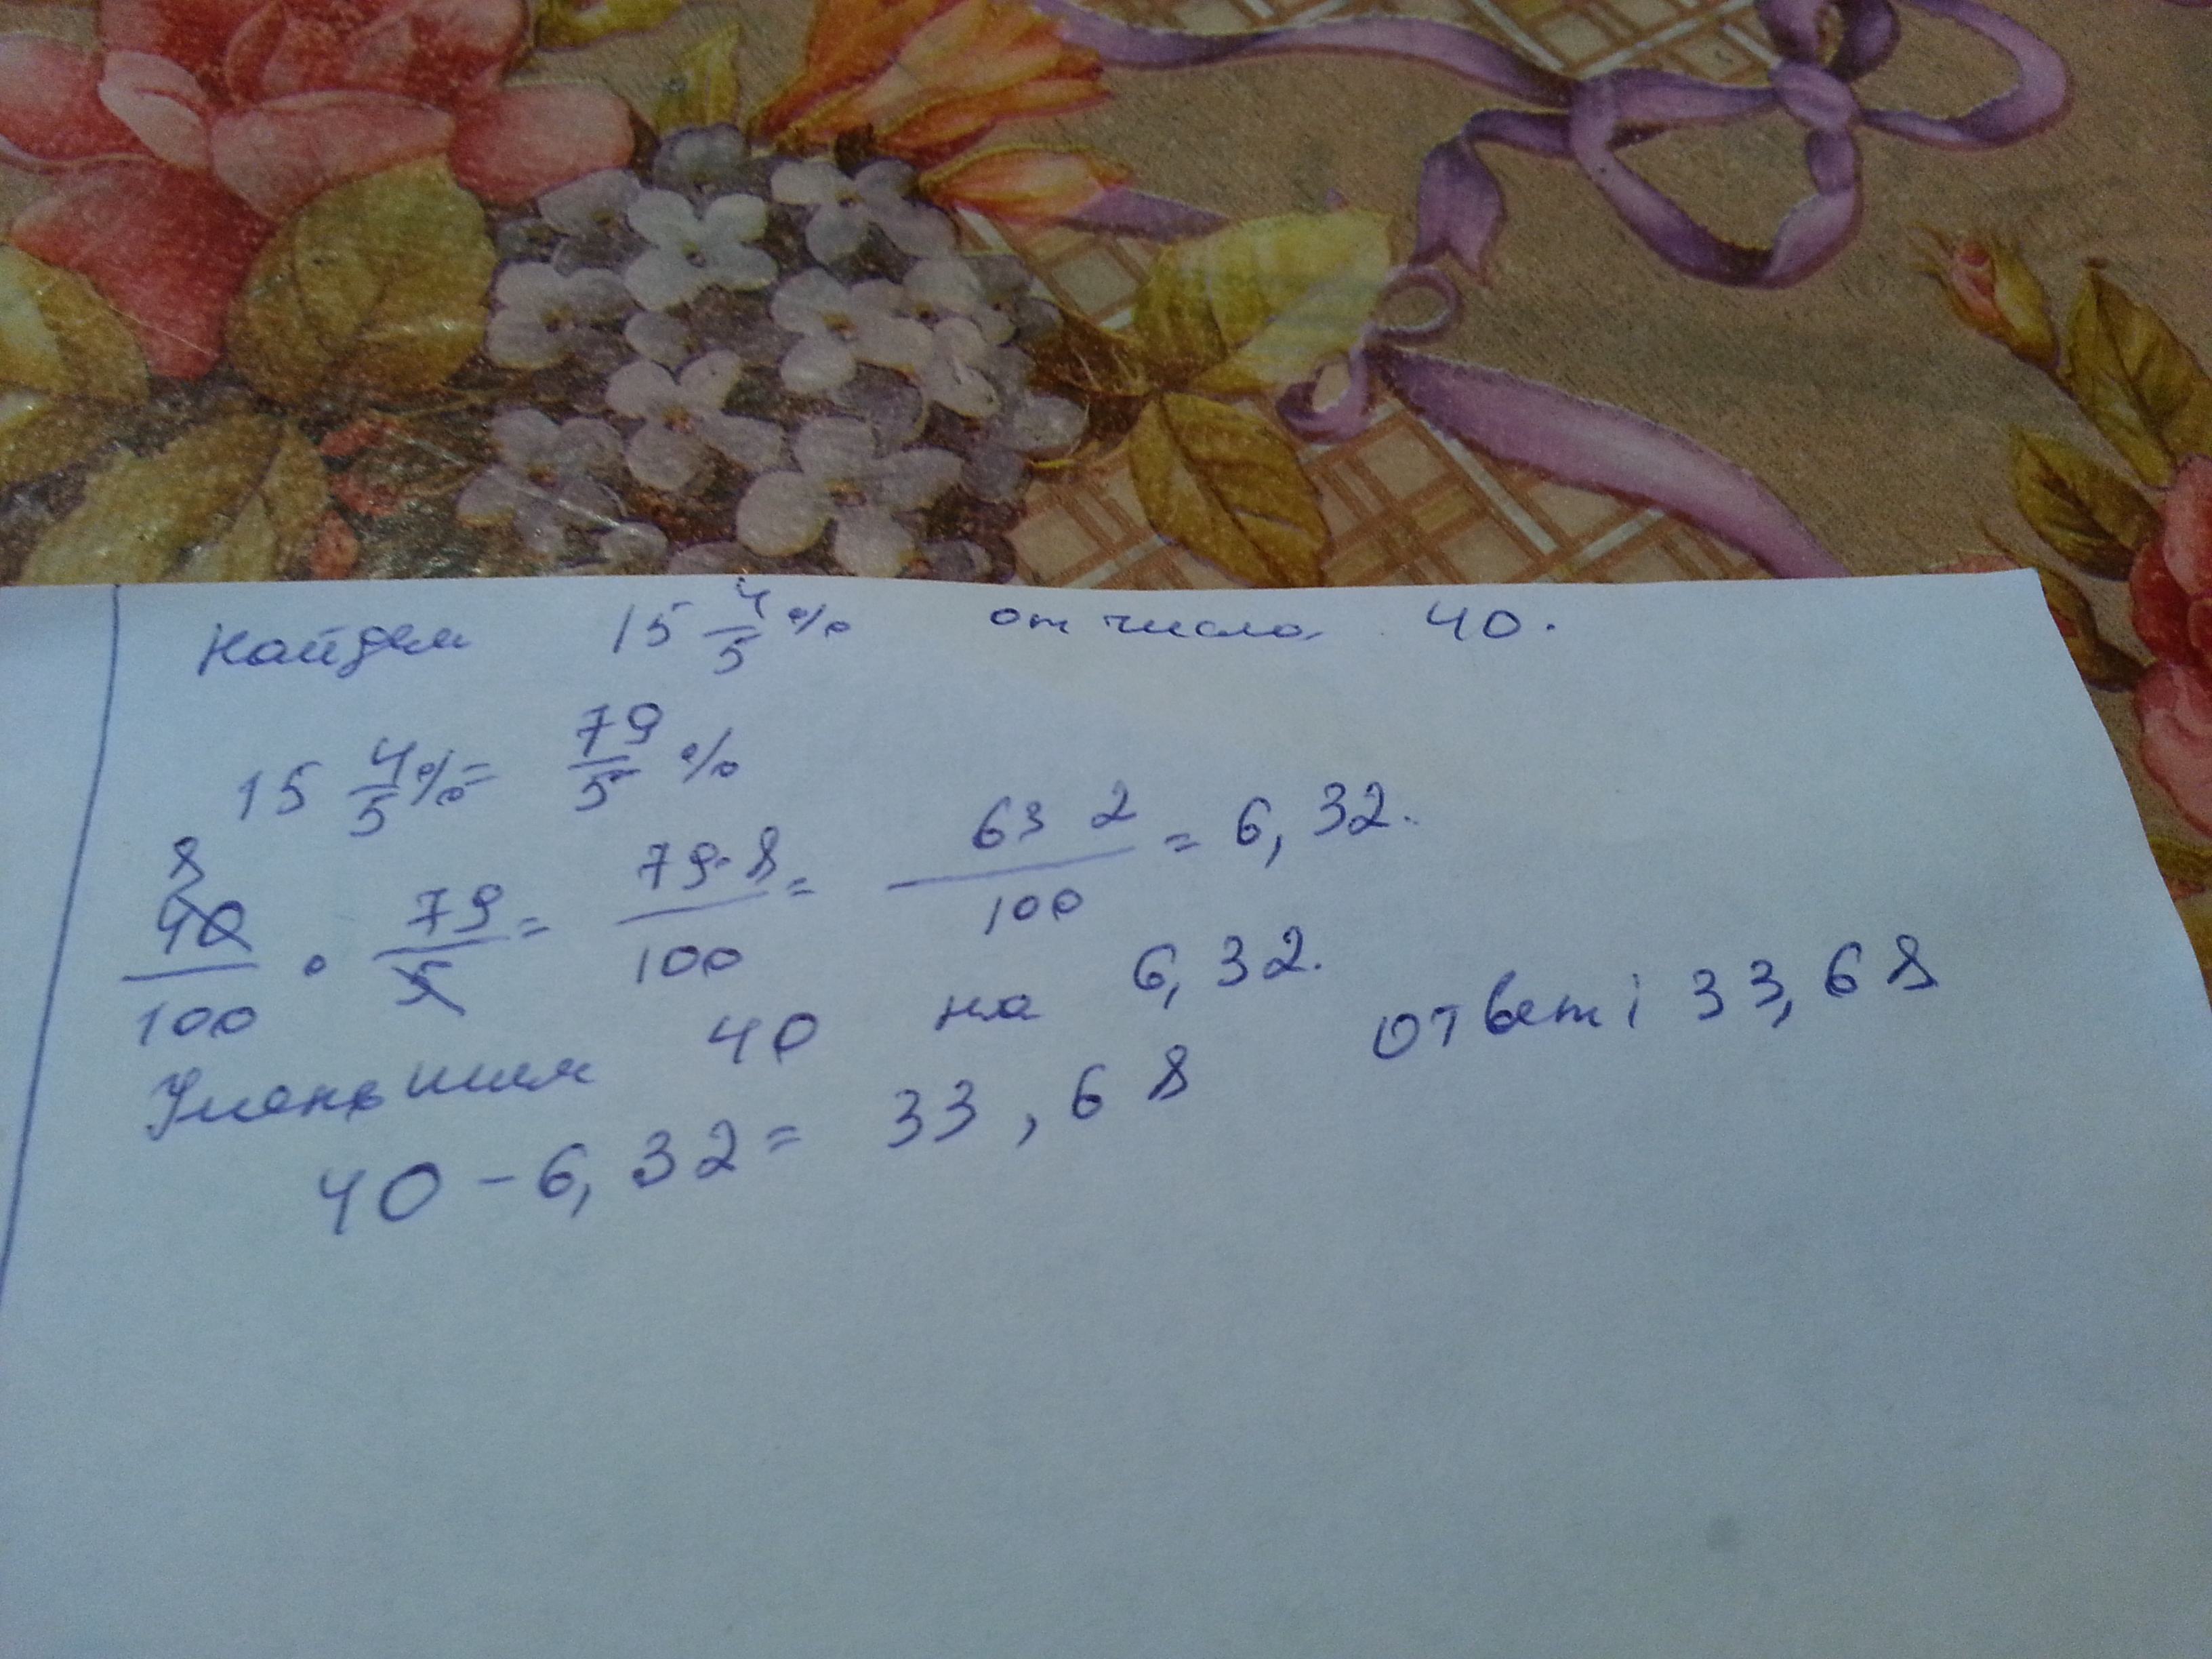 Найдем 15 4/5 % от числа 40.
15 4/5 % = 79/5 %
8
40/100 · 79/5 = 79·8/100 = 632/100 = 6,32.
Уменьшим 40 на 6,32.
40 - 6,32 = 33,68 ответ: 33,68